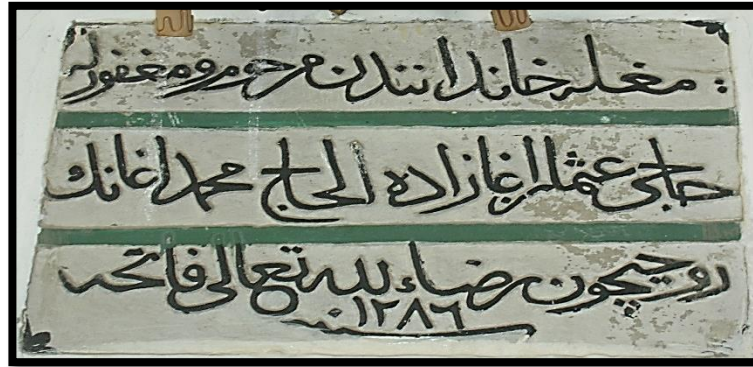 مغله خاندانندن مرحوم ومغفور له
حاجى عثمان اغازاده الحاج محمد اغانك
روحيچون رضاء لله تعالى فاتحه
سنه ١٢٨٦